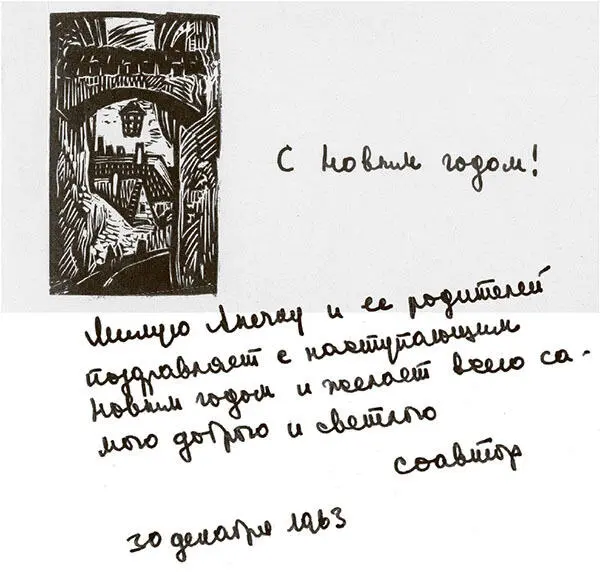 С Новым годом!
Милую Анечку и ее родителей
поздравляет с наступающим
Новым годом и желает всего са-
мого доброго и светлого
соавтор
30 декабря 1963